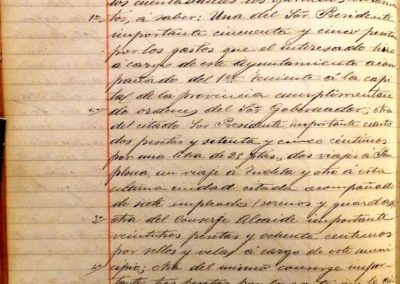 los cuentas
1º tos, á saber: Una del Sor. Presidente
importante cincuenta y cinco pesetas
por los gastos que el interesado hizo
á cargo de este Ayuntamiento acom-
pañado del 1er teniente á la capi-
tal de la provincia cumplimentan-
2º do ordenes del Sor. Gobernador; otra
del citado Sor. Presidente importante
dos pesetas y setenta y cinco céntimos
por una lista de 28 dos viajes á Pam-
plona, un viaje á Tudela y otro á esta
ultima ciudad citada acompañado
de siete empleados serenos y guardas;
3º otra del Conserge Alcaide importante
veintitres pesetas y ochenta céntimos
por sellos y velas á cargo de este muni-
4º cipio; otra del mismo conserge impor-
tante tres pesetas por